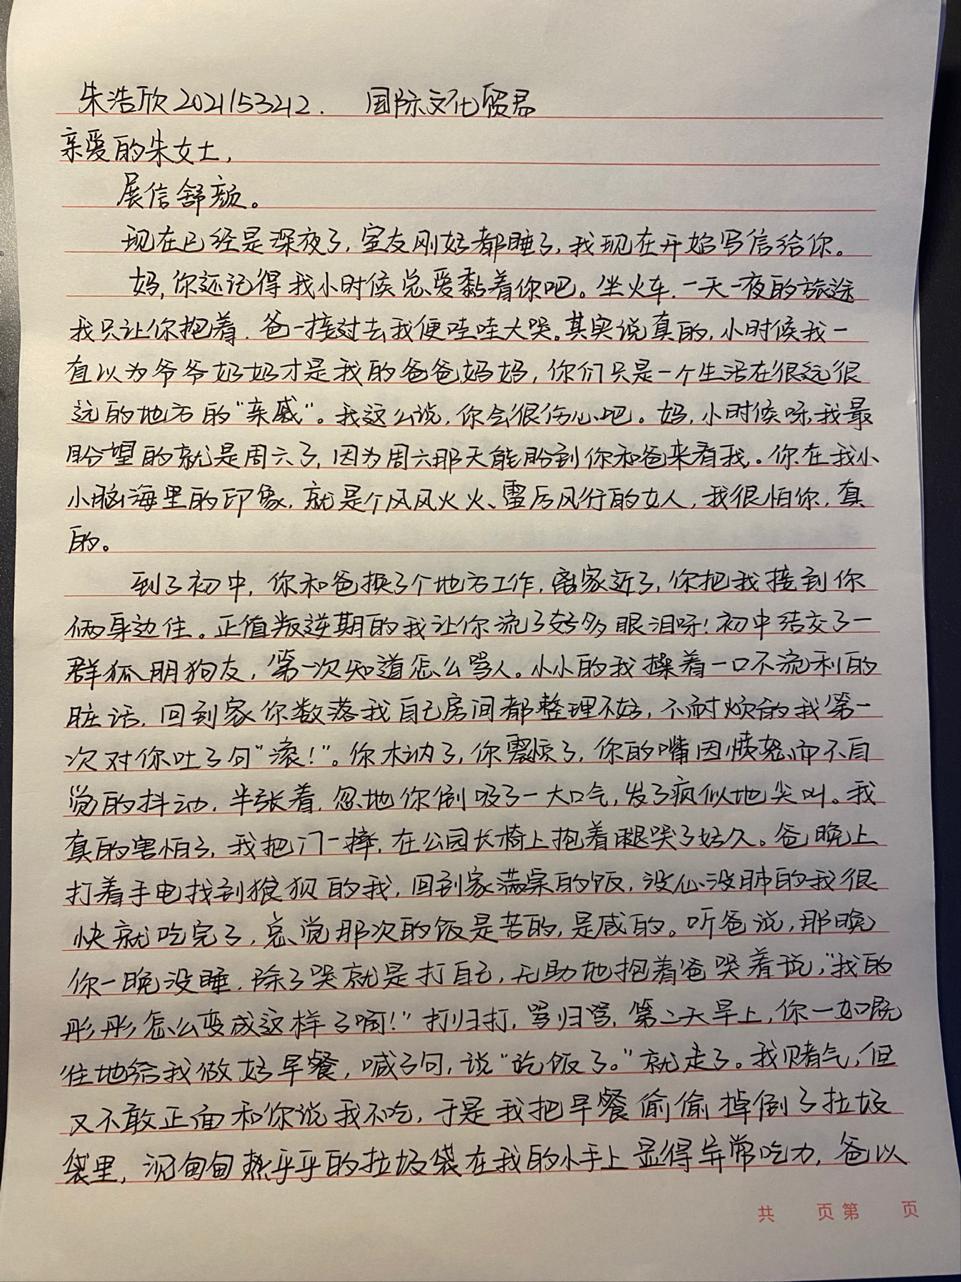 朱浩欣2021153212. 国际文化贸易
亲爱的朱女士,
展信舒颜。
现在已经是深夜了,室友刚好都睡了,我现在开始写信给你。
妈,你还记得我小时候总爱黏着你吧。坐火车,一天一夜的旅途
我只让你抱着,爸一接过去我便哇哇大哭。其实说真的,小时候我一
直以为爷爷奶奶才是我的爸爸妈妈,你们只是一个生活在很远很
远的地方的“亲戚”。我这么说,你会很伤心吧。妈,小时候呀,我最
盼望的就是周六了,因为周六那天能盼到你和爸来看我。你在我小
小脑海里的印象,就是个风风火火、雷厉风行的女人,我很怕你,真
的。
到了初中,你和爸换了个地方工作,离家近了,你把我接到你
俩身边住。正值叛逆期的我让你流了好多眼泪呀!初中结交了一
群狐朋狗友,第一次知道怎么骂人。小小的我操着一口不流利的
脏话,回到家你数落我自己房间都整理不好,不耐烦的我第一
次对你吐了句“滚!”。你木讷了,你震惊了,你的嘴因愤怒而不自
觉的抖动,半张着,忽地你倒吸了一大口气,发了疯似地尖叫。我
真的害怕了,我把门一摔,在公园长椅上抱着腿哭了好久。爸晚上
打着手电找到狼狈的我,回到家满桌的饭,没心没肺的我很
快就吃完了,总觉那次的饭是苦的,是咸的。听爸说,那晚
你一晚没睡,除了哭就是打自己,无助地抱着爸哭着说,“我的
彤彤怎么变成这样了啊!”打归打,骂归骂,第二天早上,你一如既
往地给我做好早餐,喊了句,说“吃饭了。”就走了。我赌气,但
又不敢正面和你说我不吃,于是我把早餐偷偷掉倒了垃圾
袋里,沉甸甸热乎乎的垃圾袋在我的小手上显得异常吃力,爸以
共 页第 页